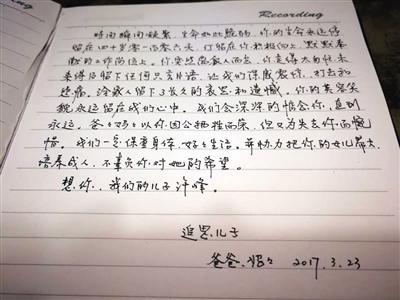 Recording
时间瞬间凝聚,生命如此脆弱,你的生命永远停
留在四十岁零一百零六天,停留在你积极向上、默默奉
献的工作岗位上。你突然离家人而去,你走得太匆忙
未来得及留下任何只言片语,让我们深感震惊、打击和
悲痛,给家人留下了长久的哀思和遗憾。你的英容笑
貌永远留在我们心中。我们会深深的怀念你,直到
永远。爸爸妈妈以你因公牺牲而荣,但又为失去你而惋
惜。我们一定保重身体,好好生活。并协力把你的女儿带大
培养成人,不辜负你对她的希望。
想你,我们的儿子许峰。
追思儿子
爸爸、妈妈 2017.3.23